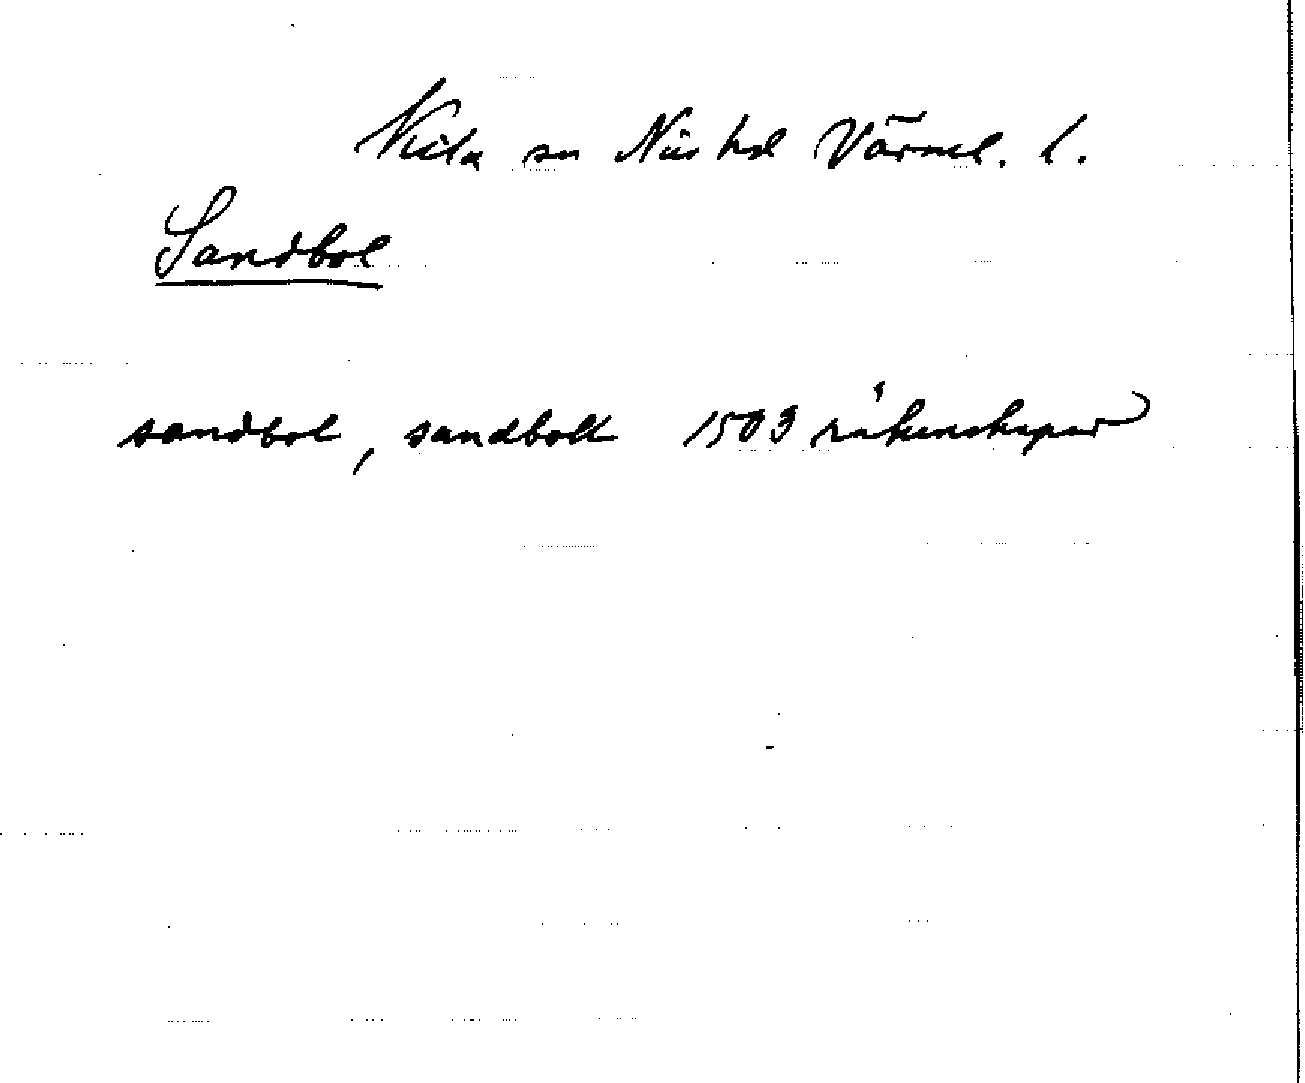 Kila sn Näs hd Värml. l.
Sandbol
sandbol, sandboll 1503 räkenskaper